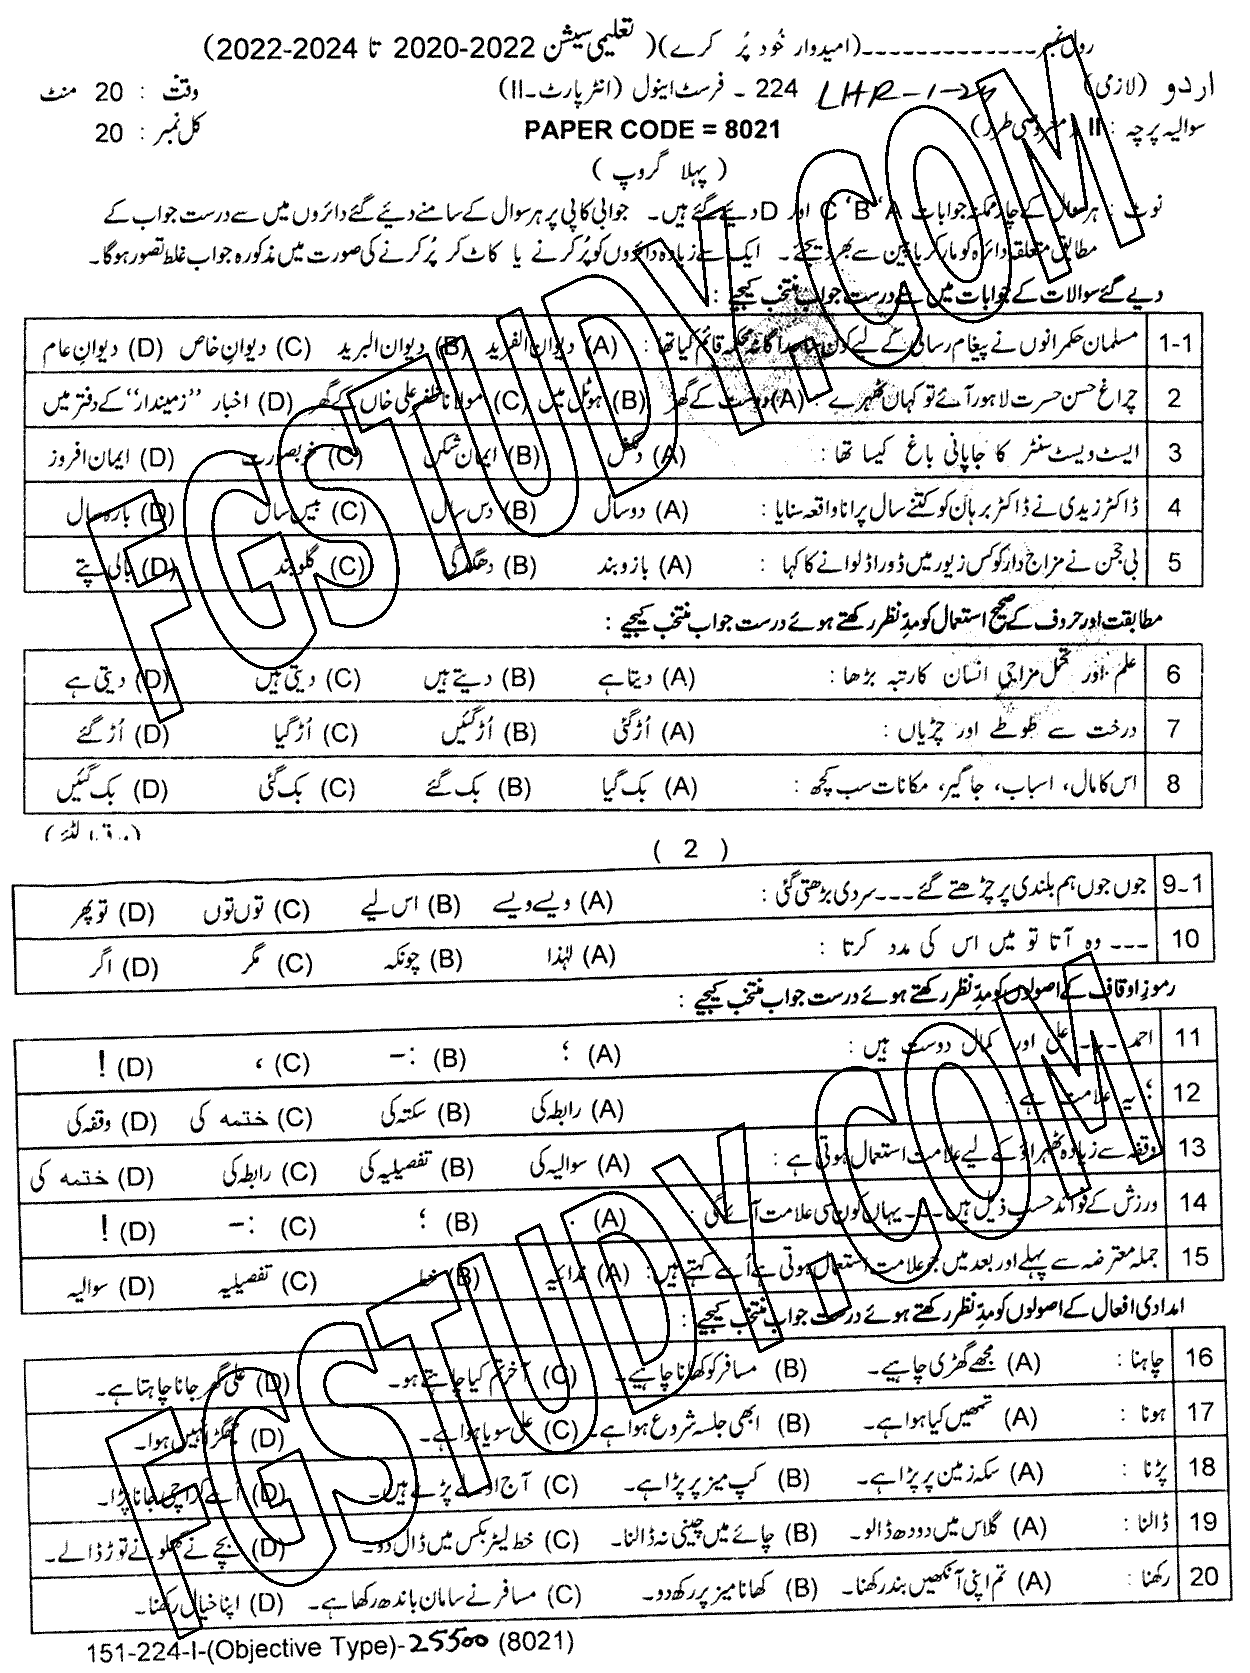 رول نمبر ------------- (امیدوار خُود پُر کرے) ( تعلیمی سیشن 2022-2020 تا 2024-2022)
اردو (لازمی) LHR-1-24 224 ۔ فرسٹ اینول (انٹر پارٹ۔II) وقت : 20 منٹ
سوالیہ پرچہ : II (معروضی طرز) PAPER CODE = 8021 کل نمبر : 20
( پہلا گروپ )
نوٹ : ہر سوال کے چار ممکنہ جوابات A ' B ' C اور D دیے گئے ہیں۔ جوابی کاپی پر ہر سوال کے سامنے دئیے گئے دائروں میں سے درست جواب کے
مطابق متعلقہ دائرہ کو مارکر یا پین سے بھر دیجئے۔ ایک سے زیادہ دائروں کو پُر کرنے یا کاٹ کر پُر کرنے کی صورت میں مذکورہ جواب غلط تصور ہوگا۔
دیے گئے سوالات کے جوابات میں سے درست جواب منتخب کیجیے :
1-1 مسلمان حکمرانوں نے پیغام رسانی کے لیے کون سا جداگانہ محکمہ قائم کیا تھا : (A) دیوان الفرید (B) دیوان البرید (C) دیوانِ خاص (D) دیوانِ عام
2 چراغ حسن حسرت لاہور آئے تو کہاں ٹھہرے : (A) دوست کے گھر (B) ہوٹل میں (C) مولانا ظفر علی خاں کے گھر (D) اخبار "زمیندار" کے دفتر میں
3 ایسٹ ویسٹ سنٹر کا جاپانی باغ کیسا تھا : (A) دلکش (B) ایمان شکن (C) خوبصورت (D) ایمان افروز
4 ڈاکٹر زیدی نے ڈاکٹر برہان کو کتنے سال پرانا واقعہ سنایا : (A) دو سال (B) دس سال (C) بیس سال (D) بارہ سال
5 بی حجن نے مزاج دار کو کس زیور میں ڈورا ڈلوانے کا کہا : (A) بازو بند (B) دھگدگی (C) گلوبند (D) بالی پتے
مطابقت اور حروف کے صحیح استعمال کو مدِ نظر رکھتے ہوئے درست جواب منتخب کیجیے :
6 علم اور تحمل مزاجی انسان کا رتبہ بڑھا : (A) دیتا ہے (B) دیتے ہیں (C) دیتی ہیں (D) دیتی ہے
7 درخت سے طوطے اور چڑیاں : (A) اُڑ گئی (B) اُڑ گئیں (C) اُڑ گیا (D) اُڑ گئے
8 اس کا مال، اسباب، جاگیر، مکانات سب کچھ : (A) بک گیا (B) بک گئے (C) بک گئی (D) بک گئیں
( 2 )
9-1 جوں جوں ہم بلندی پر چڑھتے گئے --- سردی بڑھتی گئی : (A) ویسے ویسے (B) اس لیے (C) توں توں (D) تو پھر
10 --- وہ آتا تو میں اس کی مدد کرتا : (A) لہٰذا (B) چونکہ (C) مگر (D) اگر
رموزِ اوقاف کے اصولوں کو مدِ نظر رکھتے ہوئے درست جواب منتخب کیجیے :
11 احمد --- علی اور کمال دوست ہیں : (A) ؛ (B) :- (C) ، (D) !
12 ؛ یہ علامت ہے : (A) رابطہ کی (B) سکتہ کی (C) ختمہ کی (D) وقفہ کی
13 وقفہ سے زیادہ ٹھہراؤ کے لیے علامت استعمال ہوتی ہے : (A) سوالیہ کی (B) تفصیلیہ کی (C) رابطہ کی (D) ختمہ کی
14 ورزش کے فوائد حسبِ ذیل ہیں --- یہاں کون سی علامت آئے گی : (A) : (B) ؛ (C) :- (D) !
15 جملہ معترضہ سے پہلے اور بعد میں جو علامت استعمال ہوتی ہے اُسے کہتے ہیں : (A) ندائیہ (B) خط (C) تفصیلیہ (D) سوالیہ
امدادی افعال کے اصولوں کو مدِ نظر رکھتے ہوئے درست جواب منتخب کیجیے :
16 چاہنا : (A) مجھے گھڑی چاہیے۔ (B) مسافر کو کھانا چاہیے۔ (C) آخر تم کیا چاہتے ہو۔ (D) علی گھر جانا چاہتا ہے۔
17 ہونا : (A) تمھیں کیا ہوا ہے۔ (B) ابھی جلسہ شروع ہوا ہے۔ (C) علی سویا ہوا ہے۔ (D) جھگڑا نہیں ہوا۔
18 پڑنا : (A) سکہ زمین پر پڑا ہے۔ (B) کپ میز پر پڑا ہے۔ (C) آج اولے پڑے ہیں۔ (D) اسے کراچی جانا پڑا۔
19 ڈالنا : (A) گلاس میں دودھ ڈالو۔ (B) چائے میں چینی نہ ڈالنا۔ (C) خط لیٹر بکس میں ڈال دو۔ (D) بچے نے کھلونے توڑ ڈالے۔
20 رکھنا : (A) تم اپنی آنکھیں بند رکھنا۔ (B) کھانا میز پر رکھ دو۔ (C) مسافر نے سامان باندھ رکھا ہے۔ (D) اپنا خیال رکھنا۔
151-224-I-(Objective Type)-25500 (8021)
FGSTUDY.COM
FGSTUDY.COM